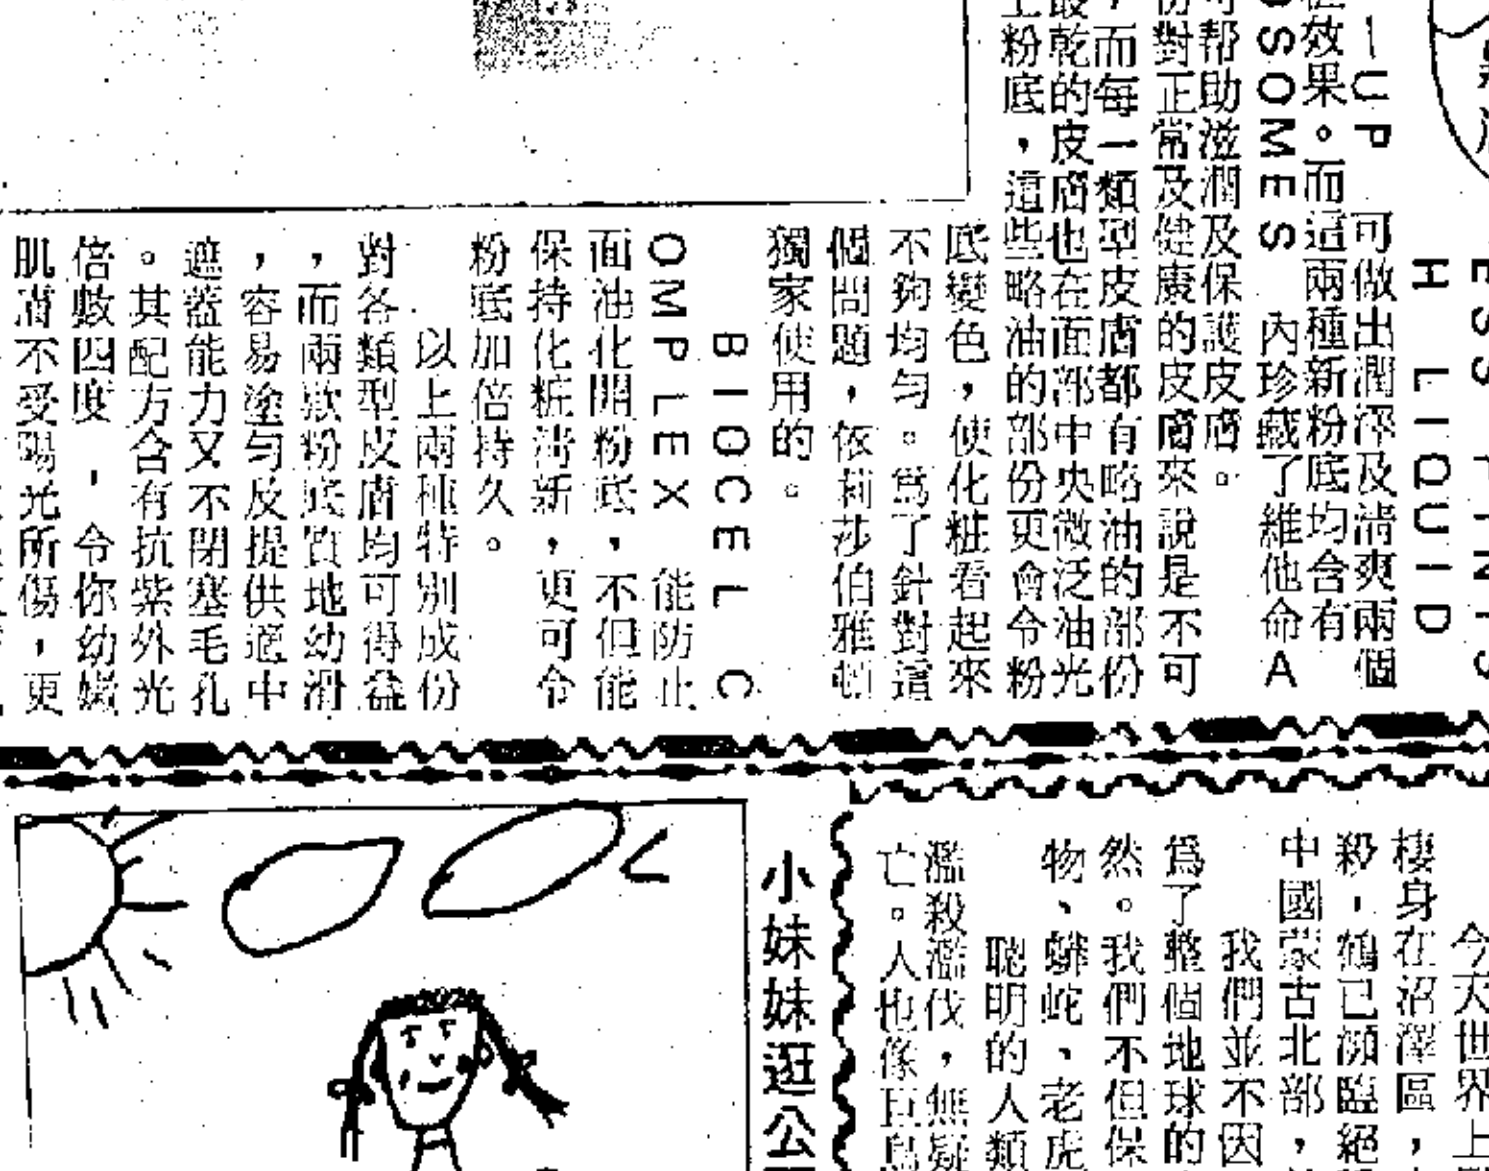 ESS FINIS
H LIQUID
—UP 可做出潤澤及清爽兩個
效果。而這兩種新粉底均含有
OSOMES 內珍藏了維他命A
可帮助滋潤及保護皮膚。
份對正常及健康的皮膚來說是不可
，而每一類型皮膚都有略油的部份
最乾的皮膚也在面部中央微泛油光
上粉底，這些略油的部份更會令粉
底變色，使化粧看起來
不夠均勻。為了針對這
個問題，依莉莎伯雅頓
獨家使用的。
BIOCEL C
OMPLEX 能防止
面油化開粉底，不但能
保持化粧清新，更可令
粉底加倍持久。
以上兩種特別成份
對各類型皮膚均可得益
，而兩款粉底質地幼滑
，容易塗勻及提供適中
遮蓋能力又不閉塞毛孔
。其配方含有抗紫外光
倍數四度，令你幼嫩
肌膚不受陽光所傷，更
今天世界上
棲身在沼澤區，
殺，鶴已瀕臨絕
中國蒙古北部，
我們並不因
為了整個地球的
然。我們不但保
物、蟒蛇、老虎
聰明的人類
濫殺濫伐，無疑
亡。人也像巨鳥
小妹妹逛公